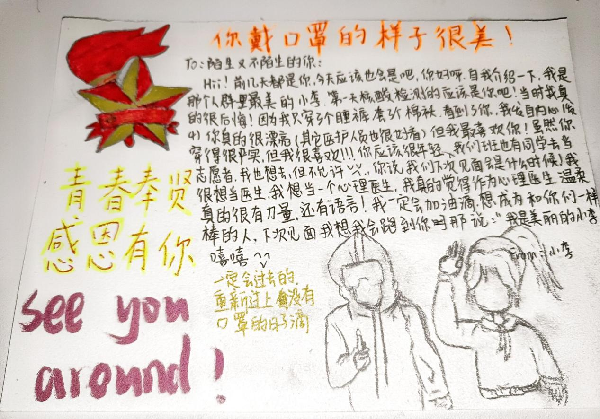 你戴口罩的样子很美！
To：陌生又不陌生的你：
Hii！前几天都是你，今天应该也会是吧，你好呀，自我介绍一下，我是
那个人群里最美的小李，第一天核酸检测的应该是你吧！当时我真
的很后悔！因为我穿了个睡裤，看到了你，我发自内心
你真的很漂亮（其它医护人员也很好看）但我最喜欢你！虽然你
穿得很严实，但我很喜欢!!!你应该很年轻，我们班也有同学去当
志愿者，我也想去，但不允许，你说，我们下次见面会是什么时候？我
很想当医生，我想当一个心理医生，我真的觉得作为心理医生温柔
真的很有力量，还有语言！我一定会加油滴，想成为和你们一样
棒的人，下次见面我想我会跑到你面那说：“我是美丽的小李
嘻嘻
From：小李
青春奉贤
感恩有你
一定会过去的
重新过上没有
口罩的日子滴
see you
around！